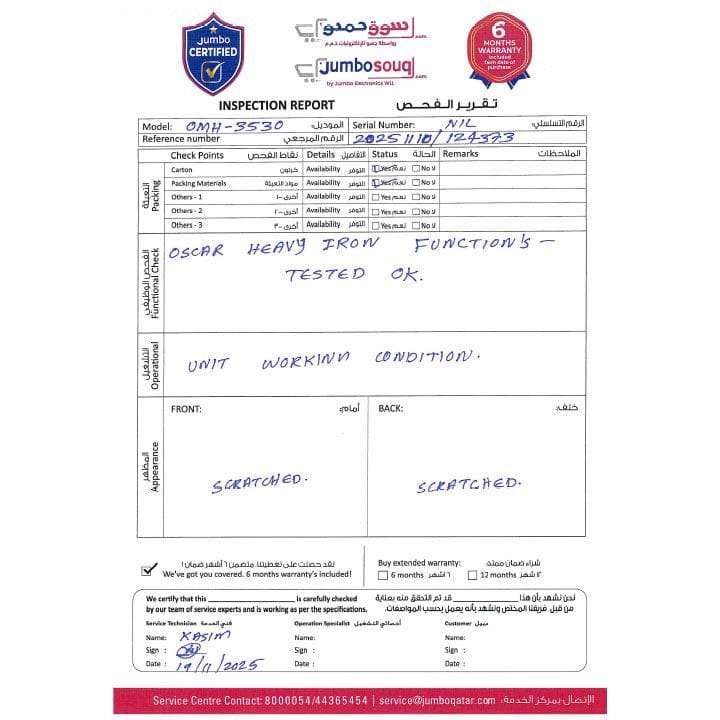 Jumbo
CERTIFIED
سوق جمبو.com
بواسطة جمبو للإلكترونيات ذ.م.م
Jumbosouq.com
by Jumbo Electronics WLL
6
MONTHS
WARRANTY
included
from date of
purchase
INSPECTION REPORT تقرير الفحص
Model: OMH-3530 الموديل: Serial Number: NIL الرقم التسلسلي:
Reference number الرقم المرجعي 2025/11/10/124373
Check Points نقاط الفحص Details التفاصيل Status الحالة Remarks الملاحظات
التعبئة Packing
Carton كرتون Availability التوفر Yes نعم No لا
Packing Materials مواد التعبئة Availability التوفر Yes نعم No لا
Others - 1 أخرى -١ Availability التوفر Yes نعم No لا
Others - 2 أخرى -٢ Availability التوفر Yes نعم No لا
Others - 3 أخرى -٣ Availability التوفر Yes نعم No لا
الفحص الوظيفي Functional Check
OSCAR HEAVY IRON FUNCTION'S -
TESTED OK.
التشغيل Operational
UNIT WORKINN CONDITION.
المظهر Appearance
FRONT: أمامي: BACK: خلف:
SCRATCHED. SCRATCHED.
لقد حصلت على تغطيتنا. متضمن ٦ أشهر ضمان!
We've got you covered. 6 months warranty's included!
Buy extended warranty: شراء ضمان ممتد:
6 months ٦ اشهر 12 months ١٢ شهر
We certify that this is carefully checked
by our team of service experts and is working as per the specifications.
نحن نشهد بأن هذا قد تم التحقق منه بعناية
من قبل فريقنا المختص ونشهد بأنه يعمل بحسب المواصفات.
Service Technician فني الخدمة Operation Specialist أخصائي التشغيل Customer عميل
Name: KASIM Name: Name:
Sign : Sign : Sign :
Date : 19/11/2025 Date : Date :
Service Centre Contact: 8000054/44365454 | service@jumboqatar.com | الإتصال بمركز الخدمة: